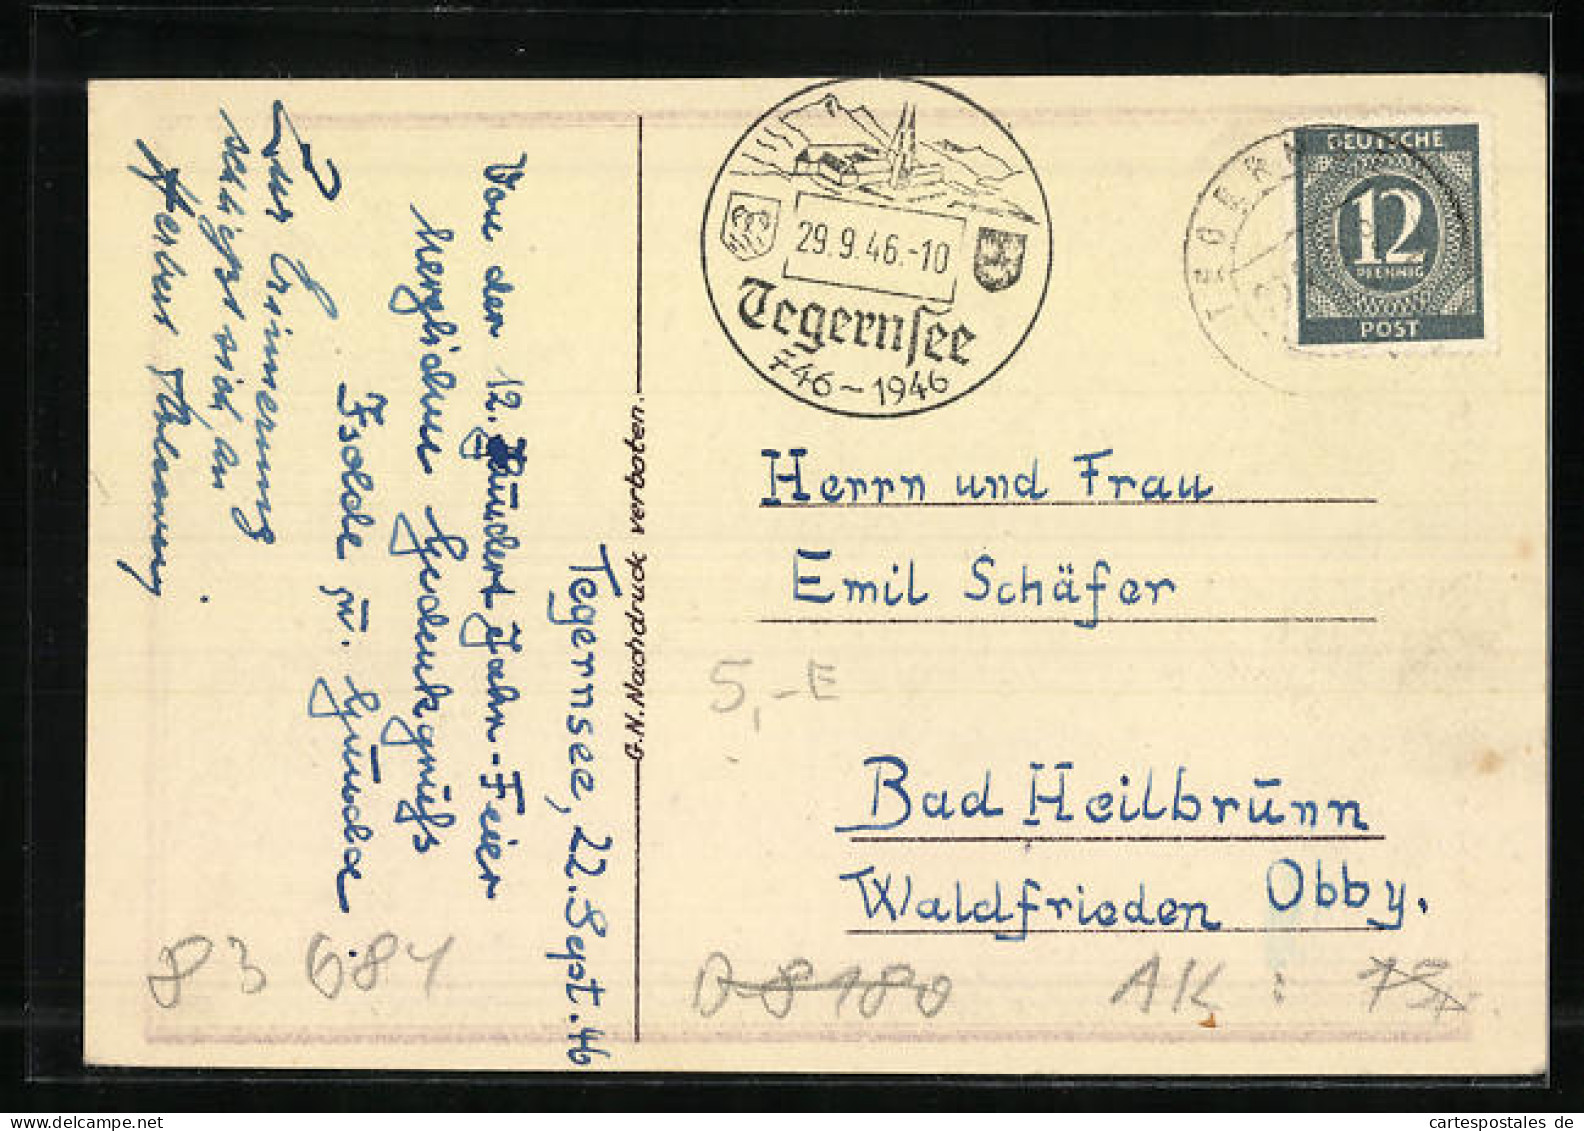 Tegernsee, 22. Sept. 46
Von der 12. Hundert Jahr-Feier
herzlichen Gedenkgruß
Isolde u. Gründe.
Zur Erinnerung
schließt sich an
G.N. Nachdruck verboten.
29.9.46.-10
Tegernsee
746-1946
TEGERN
DEUTSCHE
12
PFENNIG
POST
Herrn und Frau
Emil Schäfer
5,-E
Bad Heilbrunn
Waldfrieden Obby.
83 684
D 8180
AK:
cartespostales de